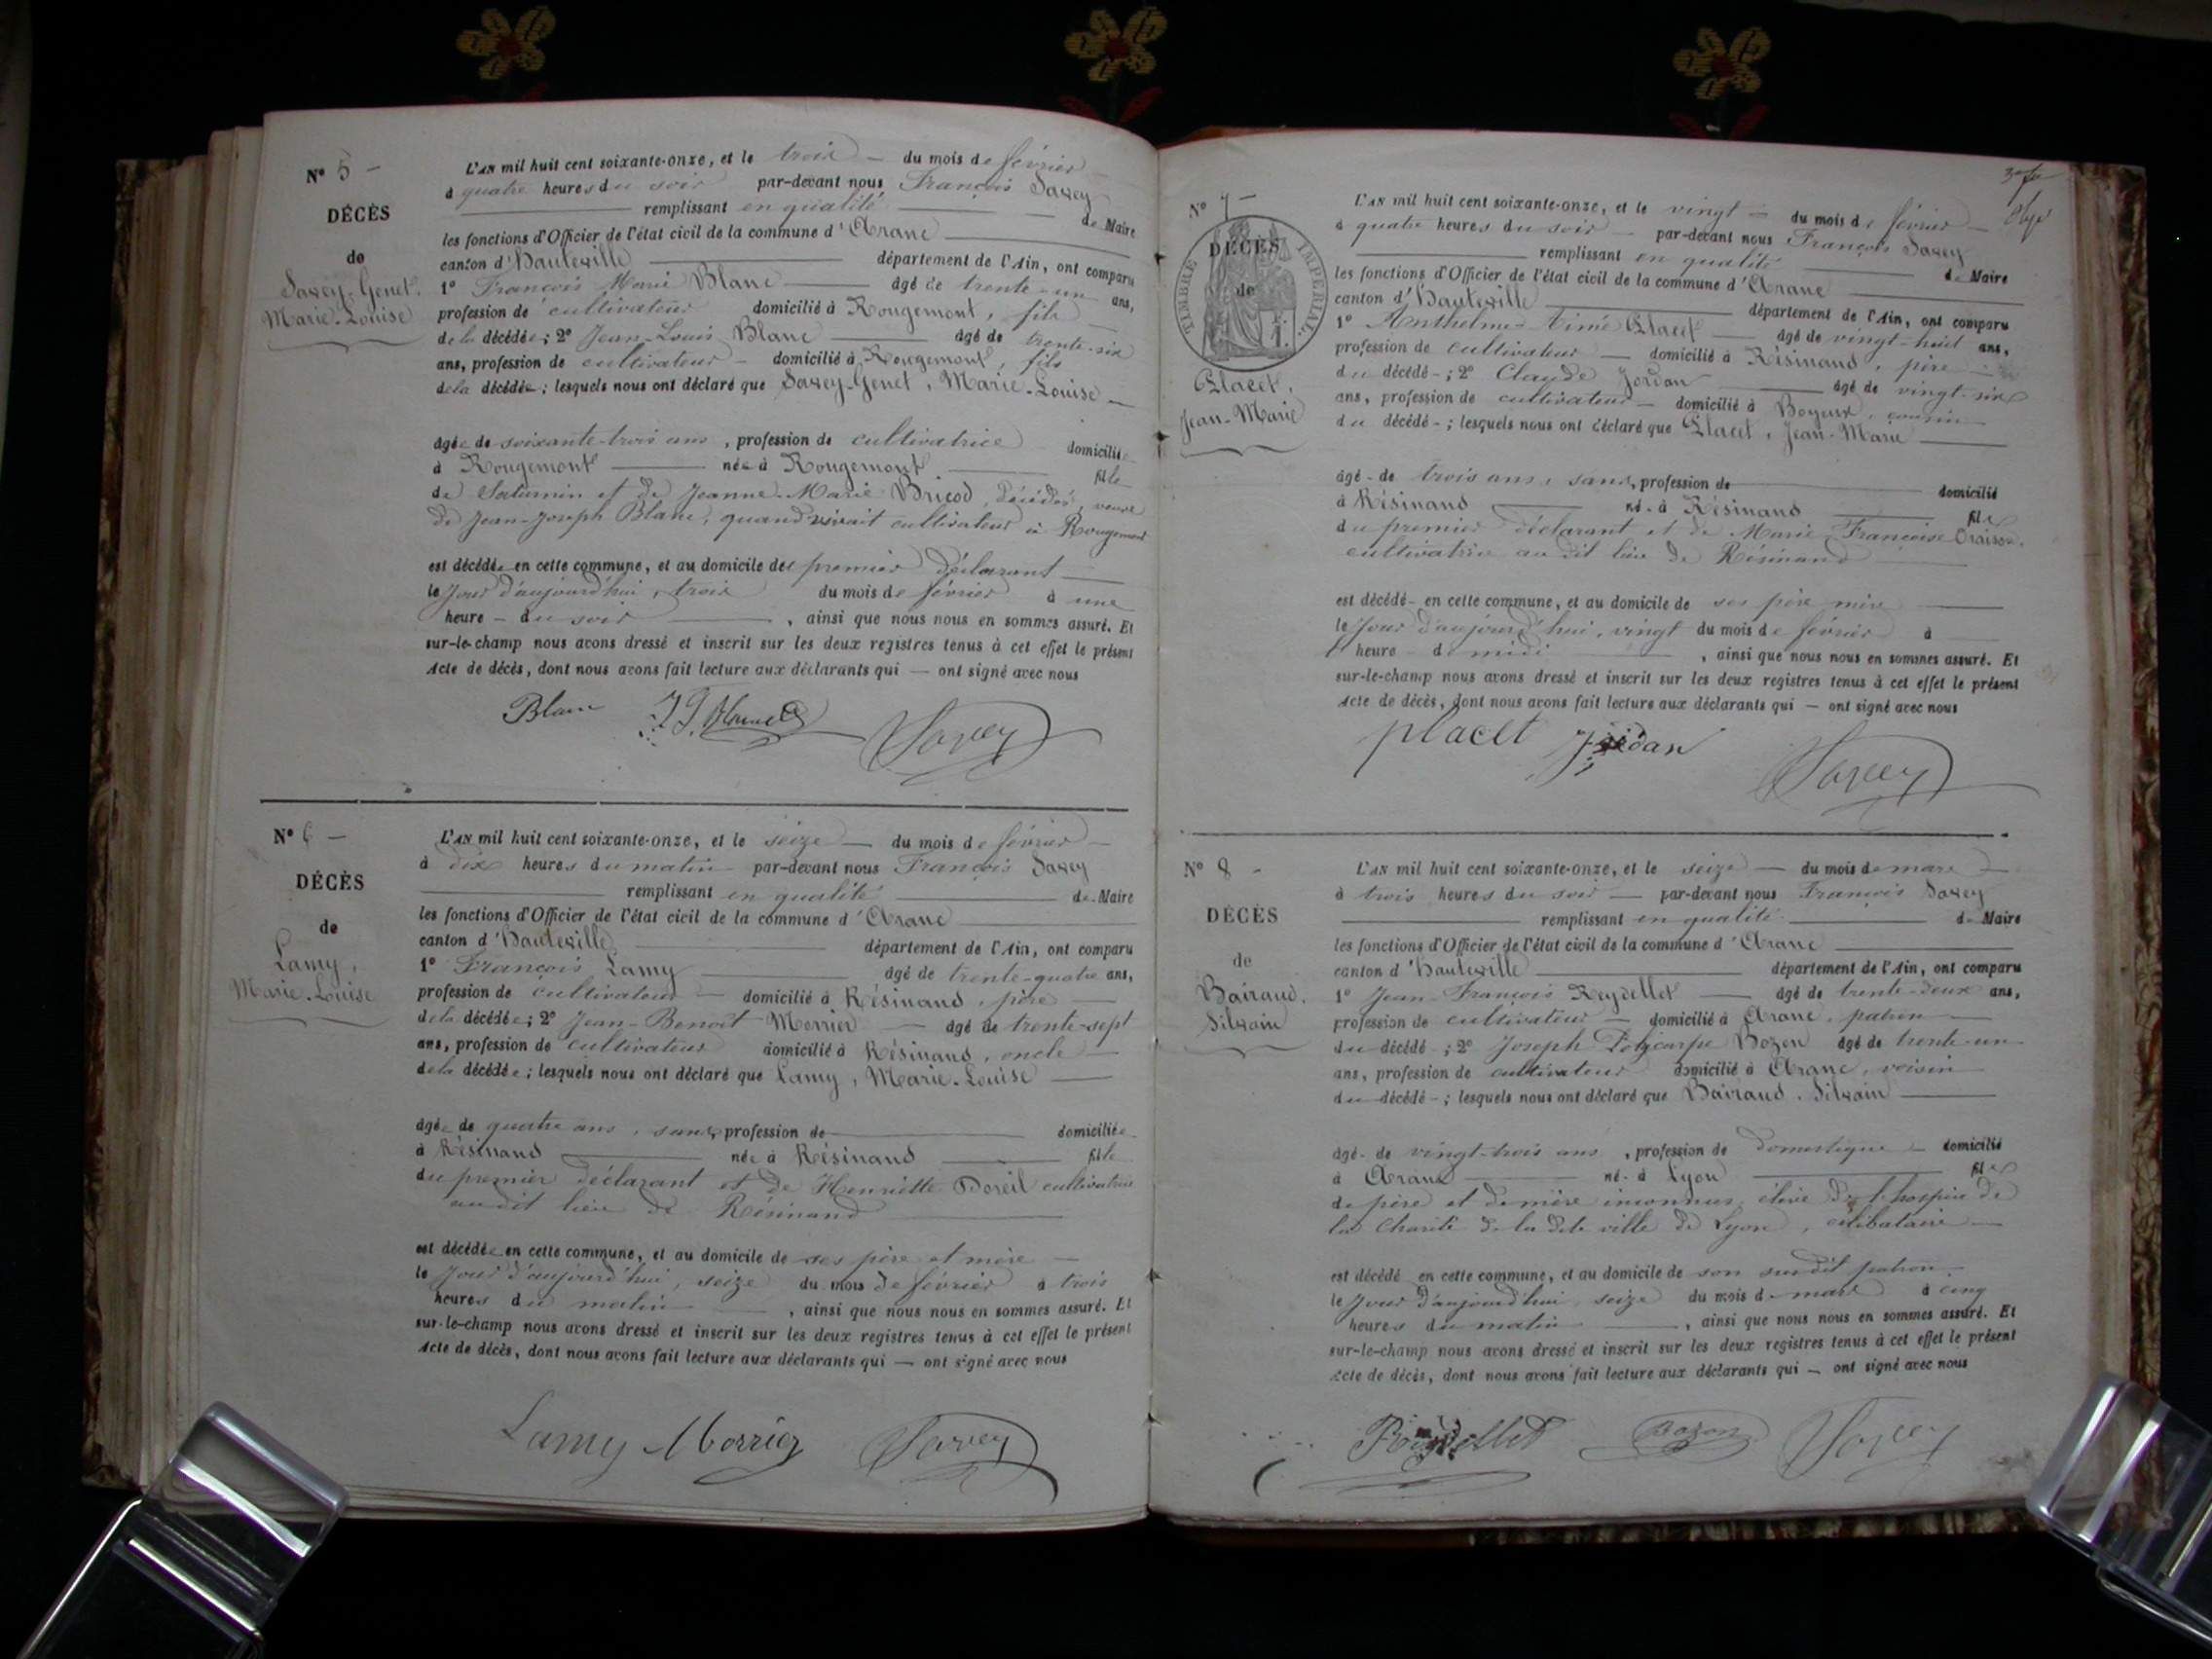 N° 5 —
DÉCÈS
de
Savey-Genet,
Marie-Louise
L'AN mil huit cent soixante-onze, et le trois — du mois de février
à quatre heures du soir par-devant nous François Savey
remplissant en qualité de Maire
les fonctions d'Officier de l'état civil de la commune d'Arane
canton d'Hauteville département de l'Ain, ont comparu
1° François Marie Blanc âgé de trente-un ans,
profession de cultivateur domicilié à Rougemont, fils
de la décédée; 2° Jean-Louis Blanc âgé de trente-six
ans, profession de cultivateur domicilié à Rougemont, fils
de la décédée; lesquels nous ont déclaré que Savey-Genet, Marie-Louise
âgée de soixante-trois ans, profession de cultivatrice domiciliée
à Rougemont née à Rougemont fille
de Saturnin et de Jeanne-Marie Bricod, décédés, veuve
de Jean-Joseph Blanc, quand vivait cultivateur à Rougemont
est décédée en cette commune, et au domicile des premier déclarant
le Jour d'aujourd'hui, trois du mois de février à une
heure du soir, ainsi que nous nous en sommes assuré. Et
sur-le-champ nous avons dressé et inscrit sur les deux registres tenus à cet effet le présent
Acte de décès, dont nous avons fait lecture aux déclarants qui — ont signé avec nous
Blanc Savey
N° 6 —
DÉCÈS
de
Lamy,
Marie-Louise
L'AN mil huit cent soixante-onze, et le seize — du mois de février
à dix heures du matin par-devant nous François Savey
remplissant en qualité de Maire
les fonctions d'Officier de l'état civil de la commune d'Arane
canton d'Hauteville département de l'Ain, ont comparu
1° François Lamy âgé de trente-quatre ans,
profession de cultivateur domicilié à Résinand, père
de la décédée; 2° Jean-Benoît Morrier âgé de trente-sept
ans, profession de cultivateur domicilié à Résinand, oncle
de la décédée; lesquels nous ont déclaré que Lamy, Marie-Louise
âgée de quatre ans, sans profession de domiciliée
à Résinand née à Résinand fille
du premier déclarant et de Henriette Doreil cultivatrice
au dit lieu de Résinand
est décédée en cette commune, et au domicile de ses père et mère
le Jour d'aujourd'hui, seize du mois de février à trois
heures du matin, ainsi que nous nous en sommes assuré. Et
sur-le-champ nous avons dressé et inscrit sur les deux registres tenus à cet effet le présent
Acte de décès, dont nous avons fait lecture aux déclarants qui — ont signé avec nous
Lamy Morrier Savey
N° 7 —
DÉCÈS
de
TIMBRE IMPÉRIAL
Placet,
Jean-Marie
L'AN mil huit cent soixante-onze, et le vingt — du mois de février
à quatre heures du soir — par-devant nous François Savey
remplissant en qualité de Maire
les fonctions d'Officier de l'état civil de la commune d'Arane
canton d'Hauteville département de l'Ain, ont comparu
1° Anthelme-Aimé Placet âgé de vingt-huit ans,
profession de cultivateur — domicilié à Résinand, père
du décédé; 2° Claude Jordan âgé de vingt-six
ans, profession de cultivateur — domicilié à Boyeux, cousin
du décédé; lesquels nous ont déclaré que Placet, Jean-Marie
âgé de trois ans, sans, profession de domicilié
à Résinand né à Résinand fils
du premier déclarant et de Marie-Françoise
cultivatrice au dit lieu de Résinand
est décédé en cette commune, et au domicile de ses père mère
le Jour d'aujourd'hui, vingt du mois de février à
heure de midi, ainsi que nous nous en sommes assuré. Et
sur-le-champ nous avons dressé et inscrit sur les deux registres tenus à cet effet le présent
Acte de décès, dont nous avons fait lecture aux déclarants qui — ont signé avec nous
placet Jordan Savey
N° 8 -
DÉCÈS
de
Bairaud,
Silvain
L'AN mil huit cent soixante-onze, et le seize — du mois de mars
à trois heures du soir — par-devant nous François Savey
remplissant en qualité de Maire
les fonctions d'Officier de l'état civil de la commune d'Arane
canton d'Hauteville département de l'Ain, ont comparu
1° Jean-François Reydellet âgé de trente-deux ans,
profession de cultivateur — domicilié à Arane, patron
du décédé; 2° Joseph Policarpe Bozon âgé de trente-un
ans, profession de cultivateur domicilié à Arane, voisin
du décédé; lesquels nous ont déclaré que Bairaud, Silvain
âgé de vingt-trois ans, profession de domestique — domicilié
à Arane né à Lyon fils
de père et de mère inconnus, élève de l'hospice de
la Charité de la dite ville de Lyon, célibataire
est décédé en cette commune, et au domicile de son susdit patron
le Jour d'aujourd'hui seize du mois de mars à cinq
heures du matin, ainsi que nous nous en sommes assuré. Et
sur-le-champ nous avons dressé et inscrit sur les deux registres tenus à cet effet le présent
Acte de décès, dont nous avons fait lecture aux déclarants qui — ont signé avec nous
Reydellet Bozon Savey